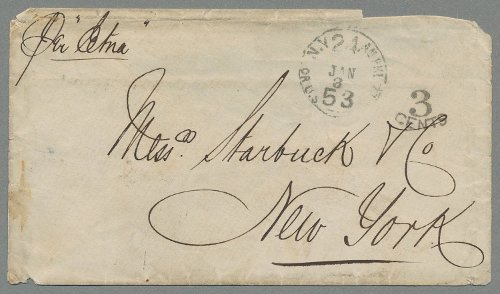 Per "Etna"
N.Y. 24 AM PKT
JAN
3
53
3
CENTS
Messrs Starbuck & Co
New York